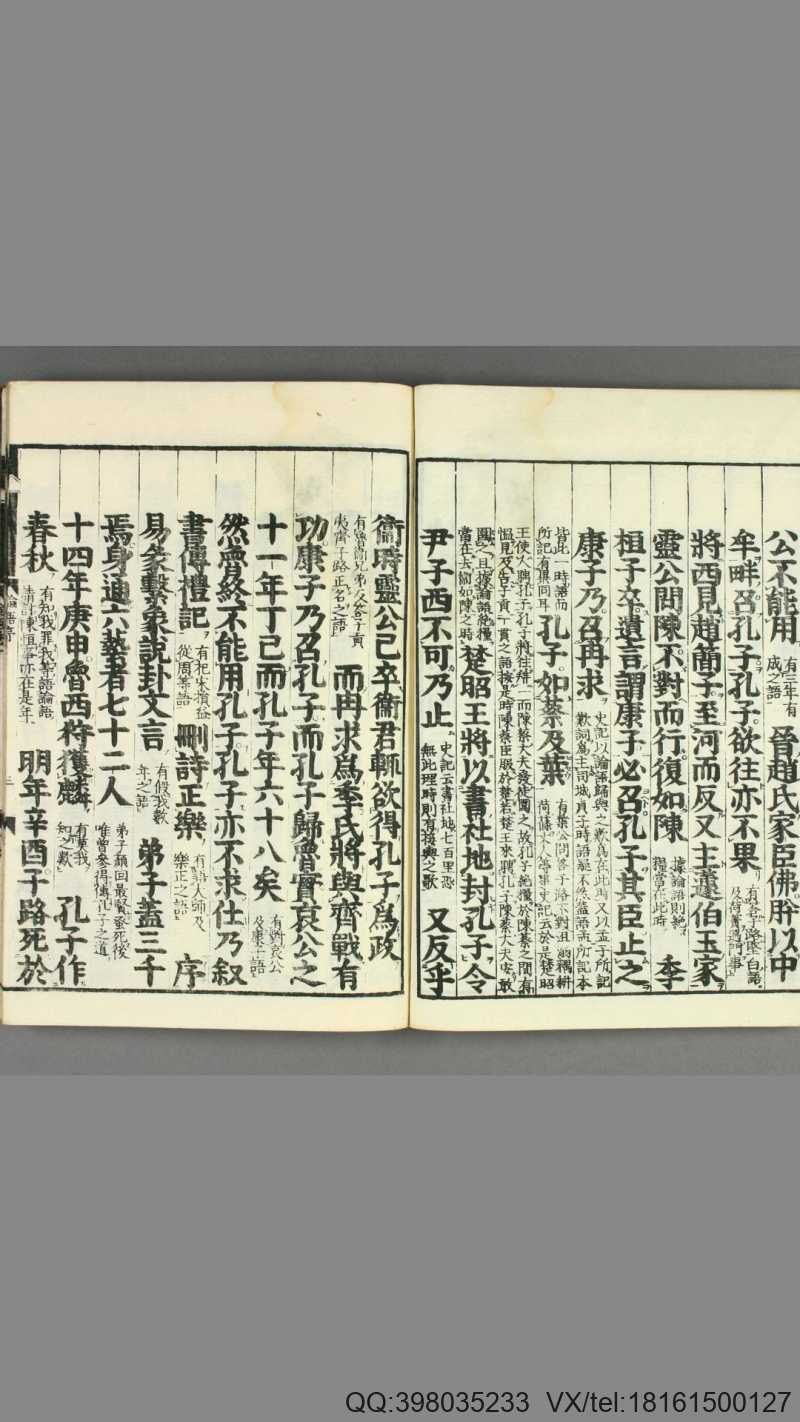 公不能用有三年有成之語晉趙氏家臣佛肸以中
牟畔召孔子孔子欲往亦不果有答子路堅白語及荷蕢過門事
將西見趙簡子至河而反又主蘧伯玉家
靈公問陳不對而行復如陳據論語則絶糧當在此時季
桓子卒遺言謂康子必召孔子其臣止之
康子乃召冉求史記以論語歸與之歎爲在此時又以孟子所記歎詞爲主司城貞子時語疑不然蓋語孟所記本
皆此一時語而所記有異同耳孔子如蔡及葉有葉公問答子路不對沮溺耦耕荷蓧丈人等事史記云於是楚昭
王使人聘孔子孔子將往拜禮而陳蔡大夫發徒圍之故孔子絶糧於陳蔡之閒有慍見及告子貢一貫之語按是時陳蔡臣服於楚若楚王來聘孔子陳蔡大夫安敢
圍之且據論語絶糧當在去衞如陳之時楚昭王將以書社地封孔子令
尹子西不可乃止史記云書社地七百里恐無此理時則有接輿之歌又反乎
衞時靈公已卒衞君輒欲得孔子爲政
有魯衞兄弟及答子貢夷齊子路正名之語而冉求爲季氏將與齊戰有
功康子乃召孔子而孔子歸魯實哀公之
十一年丁巳而孔子年六十八矣有對哀公及康子語
然魯終不能用孔子孔子亦不求仕乃叙
書傳禮記有杞宋損益從周等語刪詩正樂有語大師及樂正之語序
易彖繫象說卦文言有假我數年之語弟子蓋三千
焉身通六藝者七十二人弟子顏回最賢蚤死後唯曾參得傳孔子之道
十四年庚申魯西狩獲麟有莫我知之歎孔子作
春秋有知我罪我等語論語請討陳恒事亦在是年明年辛酉子路死於
QQ:398035233 VX/tel:18161500127